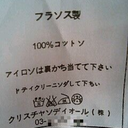 フラソス製
100%コットソ
アイロソは裏かち当てて下さい
ドティクリーニソダして下ちい
クリスチャソディオール(株)
03-